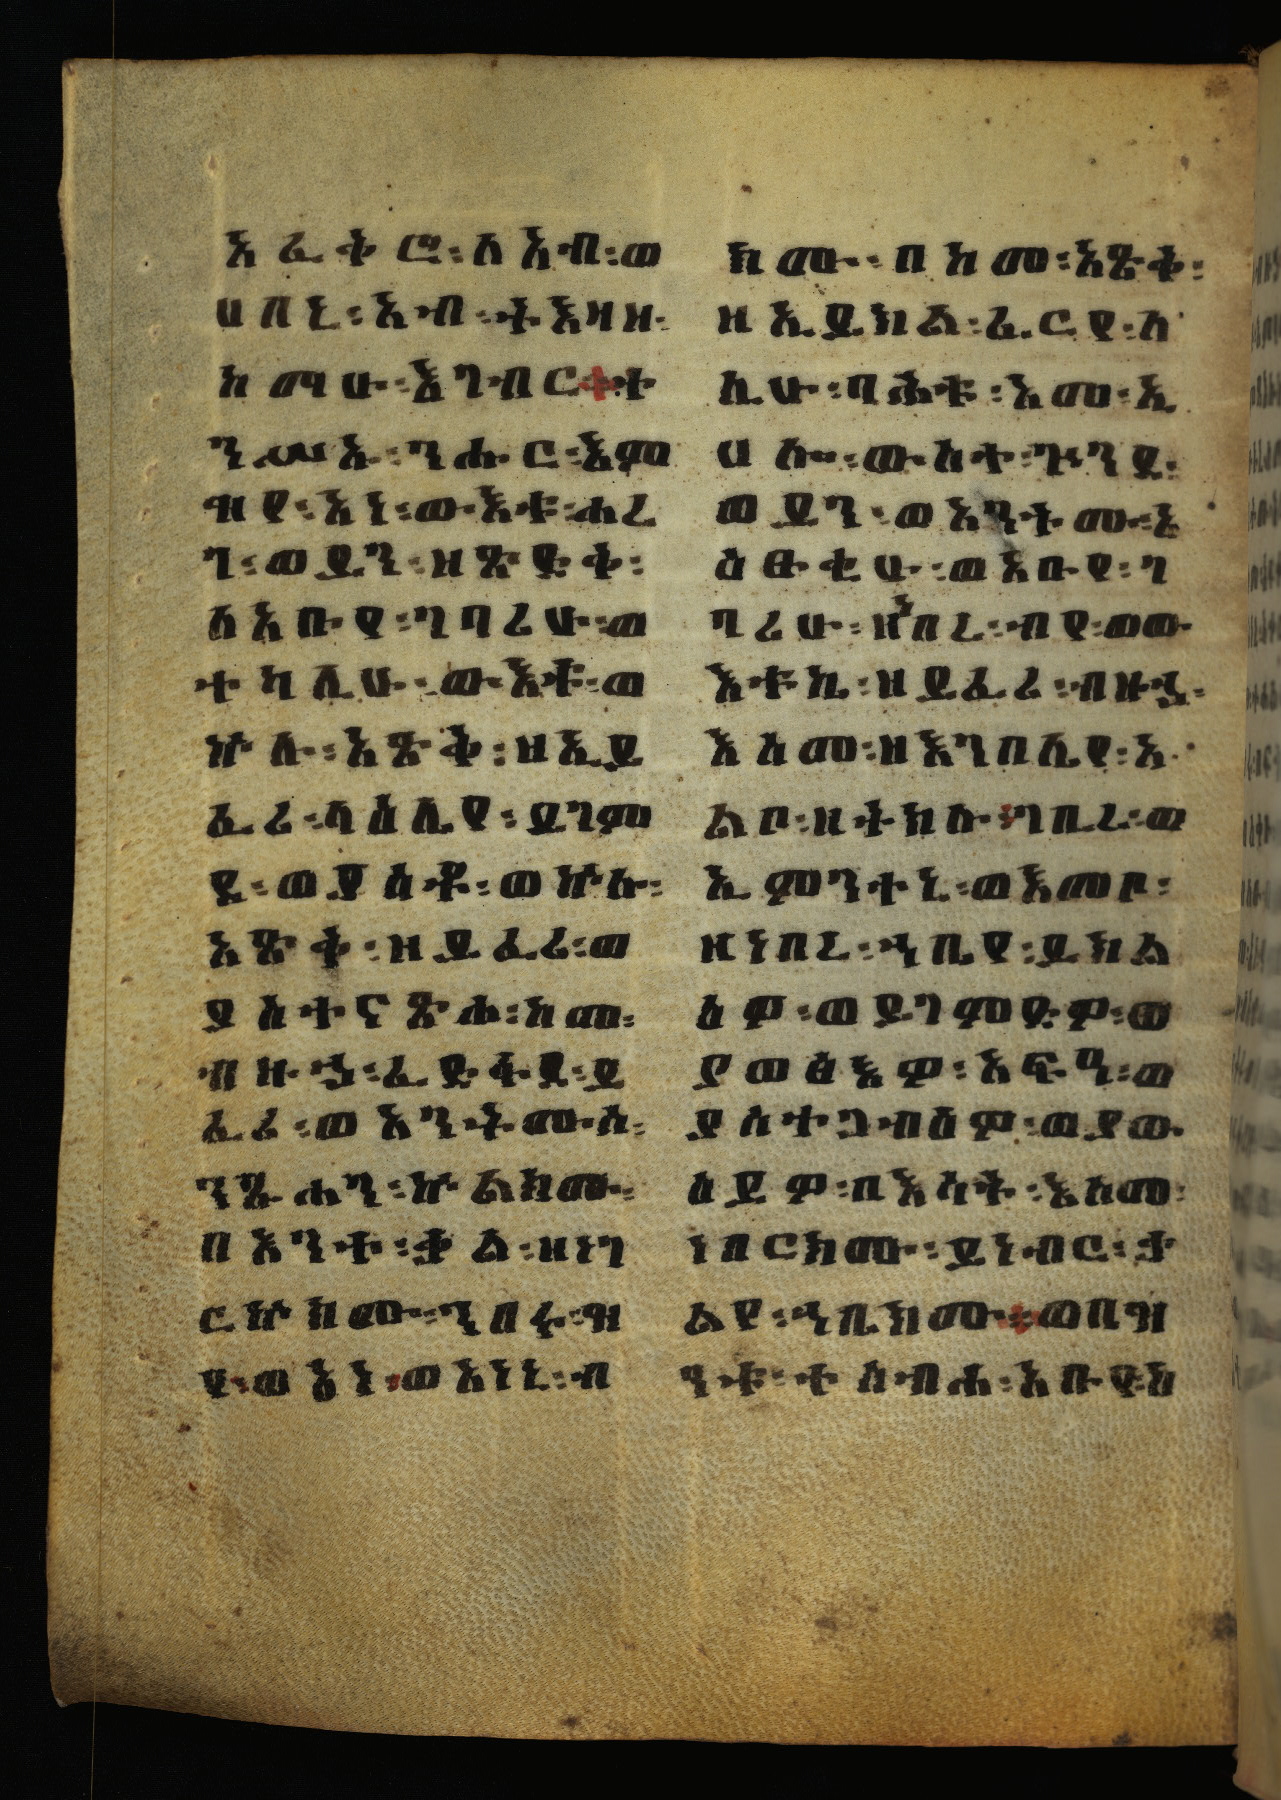 አፈቅሮ፡ለአብ፡ወ
በከመ፡አዘዘ
ከማሁ፡እገብር፡ት
ንሥኡ፡ንሑር፡እም
ዝየ፡አነ፡ውእቱ፡ሐረ
ገ፡ወይን፡ዘጽድቅ፡
ለአቡየ፡ገባሪሁ፡ወ
ተካሊሁ፡ውእቱ፡ወ
ኵሉ፡አጽቅ፡ዘኢይ
ፈሪ፡ላዕሌየ፡ይገም
ድ፡ወያሰቶ፡ወኵሉ፡
አጽቅ፡ዘይፈሪ፡ወ
ያስተናጽሑ፡ከመ፡
ብዙኃ፡ፈድፋደ፡ይ
ፈሪ፡ወአንትሙሰ፡
ንጹሓን፡ኵልክሙ፡
በእንተ፡ቃል፡ዘነገ
ርኩክሙ፡ንበሩ፡ዝ
የ፡ወአነ፡ወአነኒ፡ብ
ክሙ፡በከመ፡አጽቅ፡
ዘኢይክል፡ፈርየ፡ለ
ሊሁ፡ባሕቱ፡እመ፡ኢ
ሀሎ፡ውስተ፡ጕንደ፡
ወይን፡ወአንትሙኒ
ዕፁቂሁ፡ወአቡየ፡ገ
ባሪሁ፡ዘእበረ፡ብየ፡ወው
እቱኒ፡ዘይፈሪ፡ብዙኃ፡
እስመ፡ዘእንበሌየ፡አ
ልቦ፡ዘትክሉ፡ገቢረ፡ወ
ኢምንተኒ፡ወእመቦ፡
ዘነበረ፡ኀቤየ፡ይክል
ዕዎ፡ወይገምድዎ፡ወ
ያወፅእዎ፡አፍኣ፡ወ
ያስተጋብዕዎ፡ወያው
ዕይዎ፡በእሳት፡እስመ፡
ነበርክሙ፡ይነብር፡ቃ
ልየ፡ኀቤክሙ፡ወበዝ
ንቱ፡ተሰብሐ፡አቡየ፡ከ